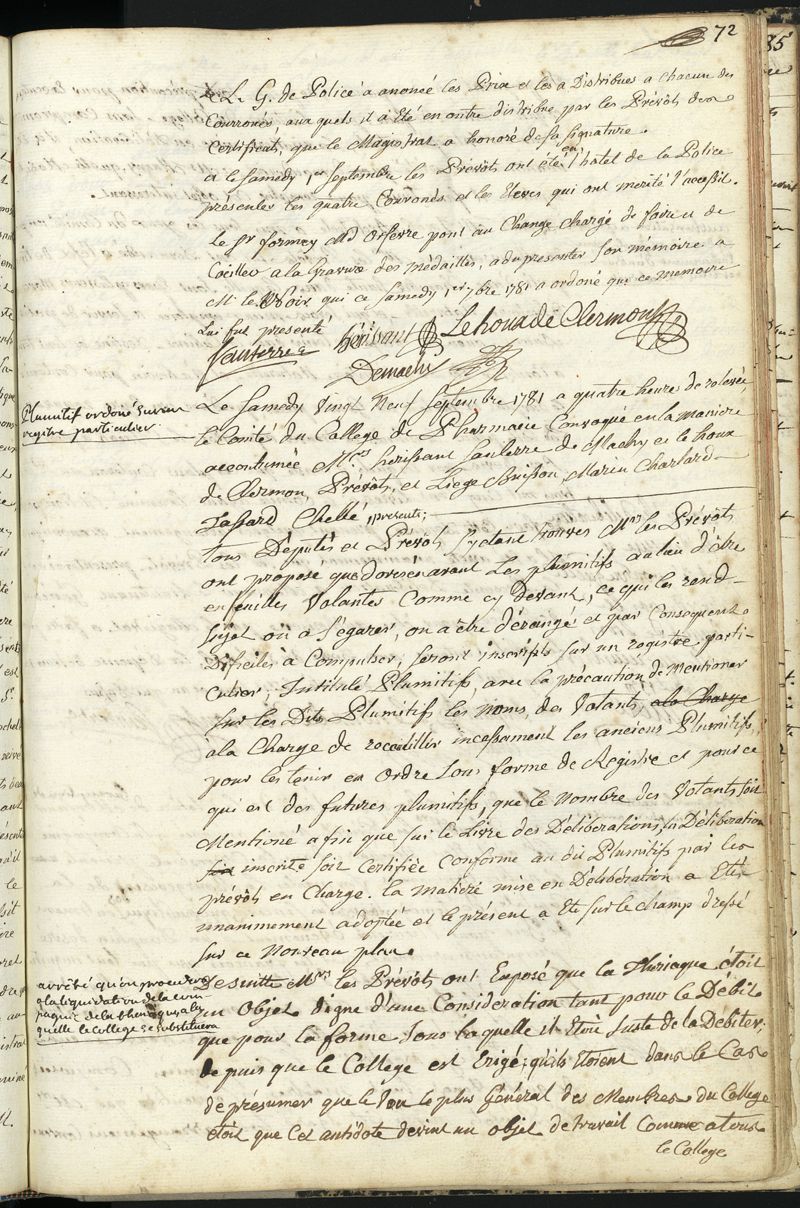 72
Le L. G. de Police a anoncé les Prix et les a Distribués a chacun des
Couronés, aux quels il a Eté en outre distribué par les Prévots des
Certificats, que le Magistrat a honoré de sa signature.
et le Samedy 1er Septembre les Prévots ont été en l'hotel de la Police
présenter les quatre Couronés et les Eleves qui ont merité l'accessit.
Le Sr formey Md Orfevre pont au Change chargé de faire
a la Gravure des médailles, a du presenter son mémoire a
Mr le Noir qui ce Samedy 1er 7bre 1781 a ordoné que ce memoire
Lui fut presenté
Santerre hérissant Lehouxdeclermont
Demachy
Plumitif ordoné sur un
registre particulier.
Le Samedy Vingt Neuf Septembre 1781 a quatre heure de relevée,
le Comité du College de Pharmacie Convoqué en la maniere
accoutumée Mrs hérissant Santerre de Machy et le houx
de Clermon, Prévots, et Liege Buisson, Marcu Charlard
Tassard Chellé, presents;
tous Députés et Prévots, Mrs les Prévots
ont proposé que dorésénavant les plumitifs au lieu d'être
en feuilles Volantes Comme cy devant, ce qui les rend
sujet ou a s'égarer, ou a être dérangé et par Consequent
Dificiles à Compulser, seront inscripts sur un registre parti-
culier, Intitulé Plumitifs, avec la précaution de Mentioner
sur les Dits Plumitifs les noms, des Votants, a la Charge
a la Charge de recœuillir incessament les anciens Plumitifs,
pour les tenir en ordre sous forme de Registre et pour ce
qui est des futures plumitifs, que le Nombre des Votants soit
Mentioné afin que sur le Livre des Déliberations, la Déliberation
soit inscrite soit Certifiée conforme au dit Plumitifs par les
prévots en Charge. la matiere mise en Délibération a Eté
unanimement adoptée et le présent a Eté sur le champ dressé
sur ce Nouveau plan.
arrêté qu'on procedera
a la liquidation de la com-
pagnie de la theriaque, a la
quelle le College se substituera
De suitte Mrs les Prévots ont Exposé que la Thériaque étoit
un Objet digne d'une Consideration tant pour le Débit
que pour la forme sous laquelle il Etoit Juste de la Debiter;
Depuis que le College est Erigé; qu'ils Etoient dans le Cas
de présumer que le Vœu le plus Général des Membres du College
étoit que Cet antidote devint un objet de travail Comme a tout
le College